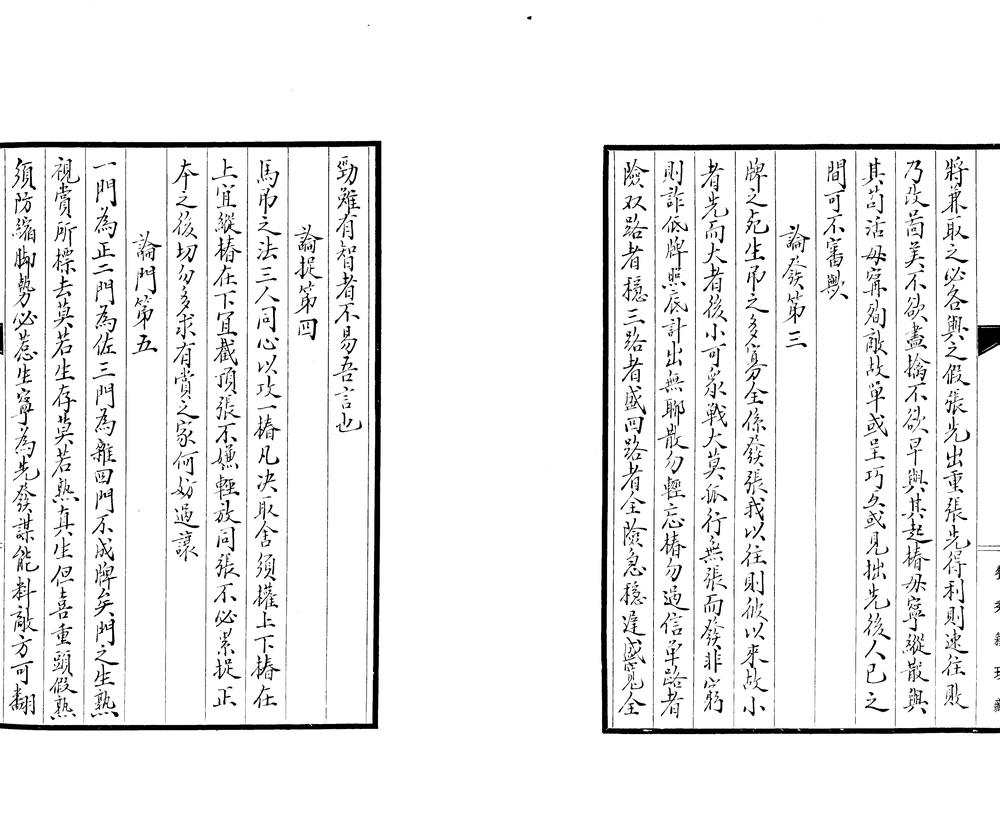 將兼取之必各與之假張先出重張先得利則速往敗
乃改啚美不欲盡擒不欲早與其起樁毋寧縱散與
其苟活毋寧殉敵故單或呈巧久或見拙先後人己之
間可不審歟
論發第三
牌之死生吊之多寡全係發張我以往則彼以來故小
者先而大者後小可眾戰大莫孤行無張而發非窮
則詐低牌照底計出無聊散勿輕忘樁勿過信單路者
險双路者穩三路者盛四路者全險急穩遲盛寬全
勁雖有智者不易吾言也
論捉第四
馬吊之法三人同心以攻一樁凡決取舍須權上下樁在
上宜縱樁在下宜截頂張不嫌輕放同張不必累捉正
本之後切勿多求有賞之家何妨過讓
論門第五
一門為正二門為佐三門為雜四門不成牌矣門之生熟
視賞所標去莫若生存莫若熟真生但喜重頭假熟
須防縮脚勢必惹生寧為先發謀能料敵方可翻